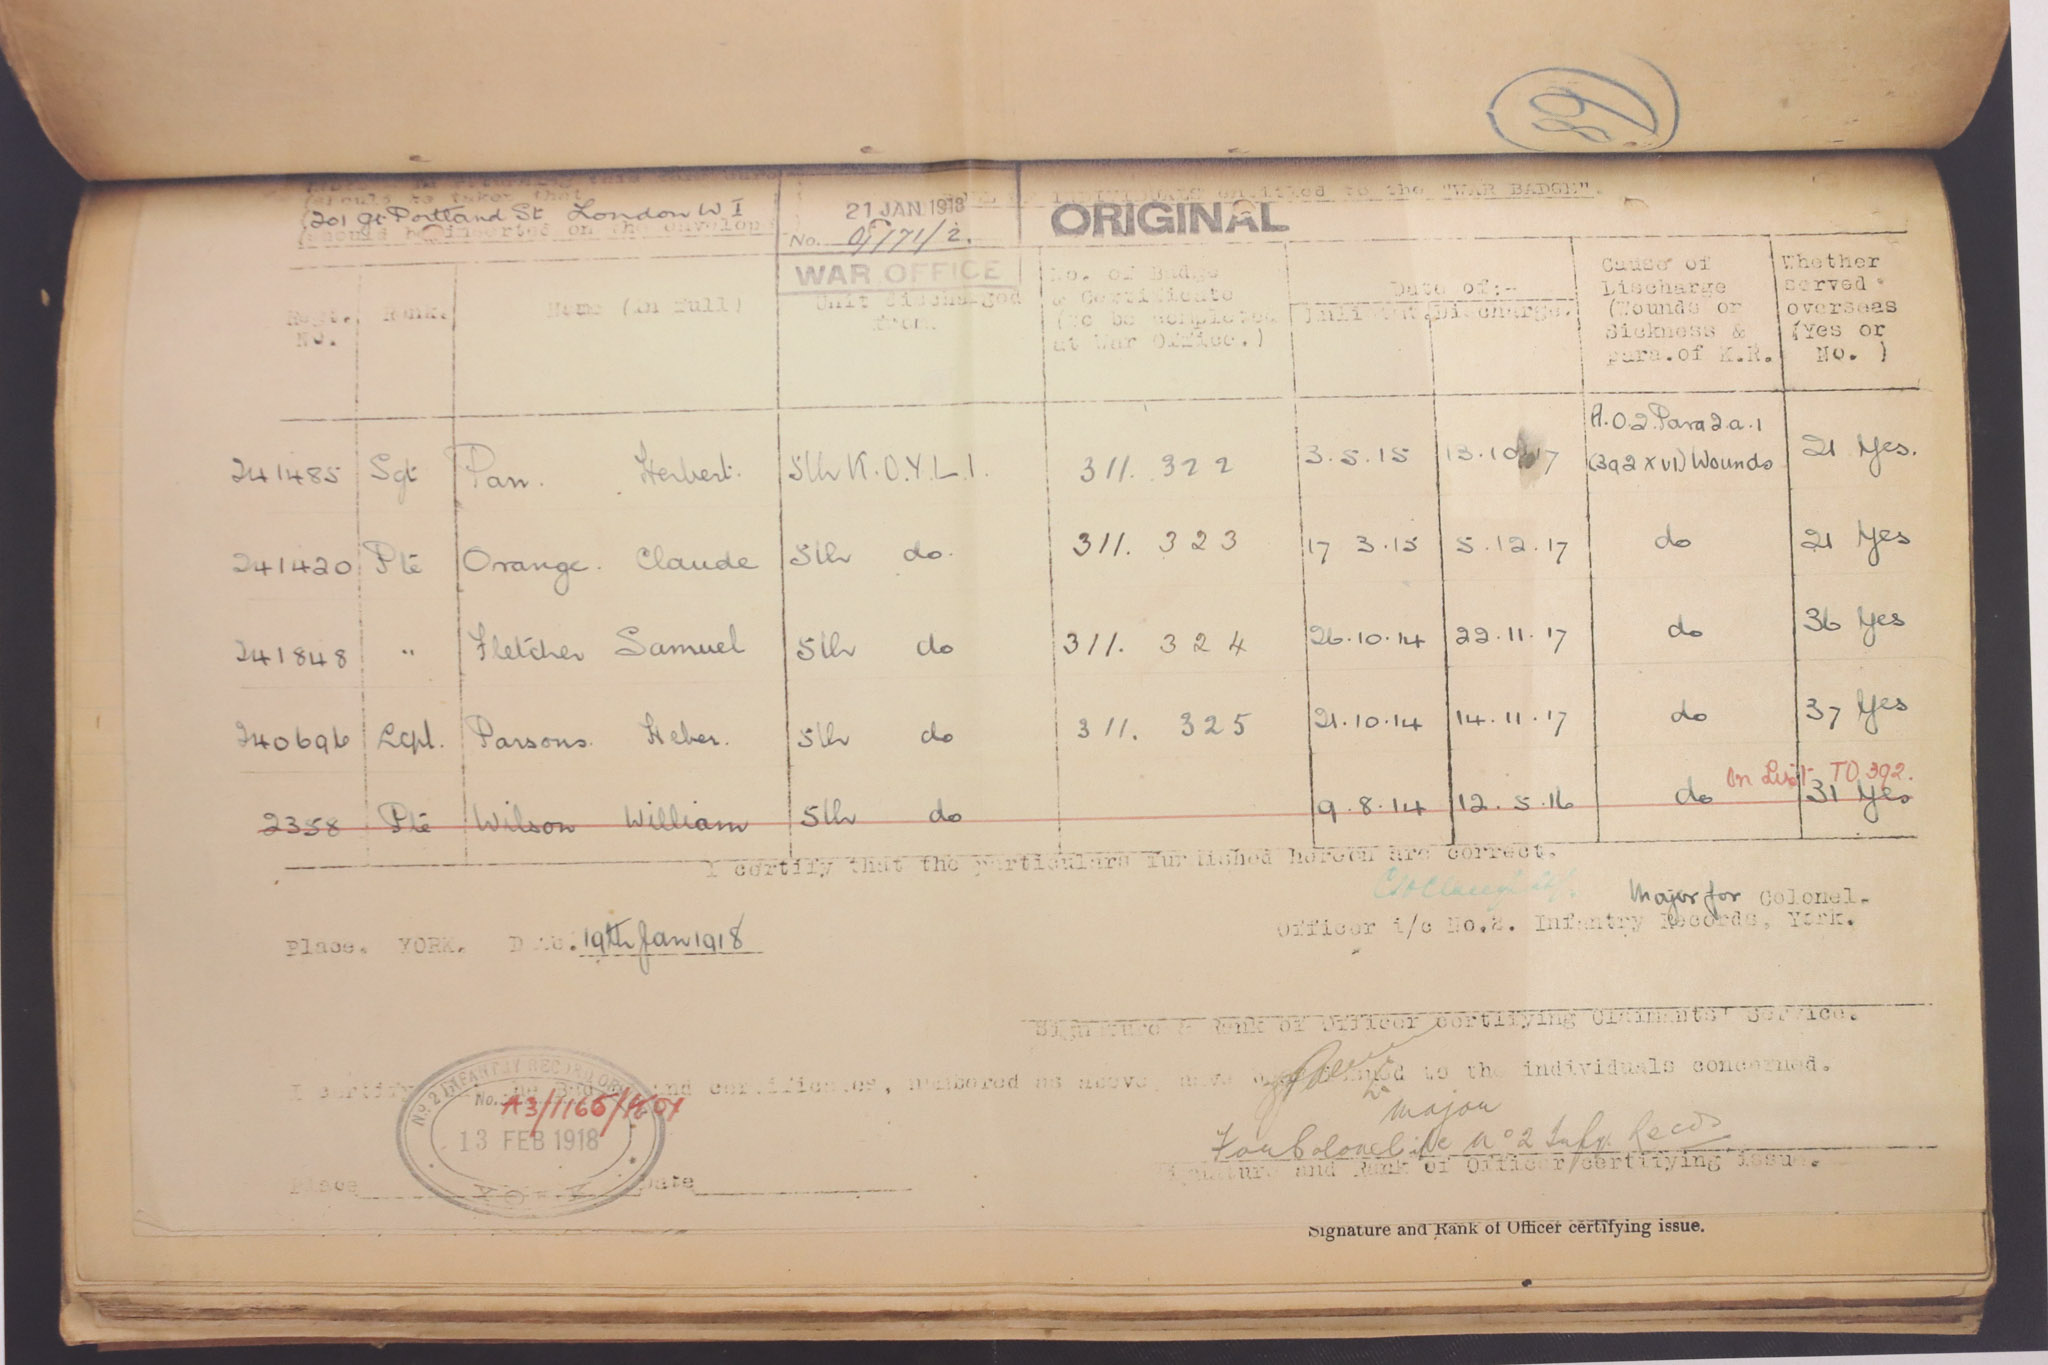 (should to taken that
(201 Gt Portland St. London W I
(should be inserted on the envelope
21 JAN. 1918
No. 9/171/2.
WAR OFFICE
INDIVIDUALS entitled to the "WAR BADGE".
ORIGINAL
Regt. No.
Rank.
Name (in full)
Unit discharged from.
No. of Badge & Certificate (to be completed at War Office.)
Date of:-
Enlistmt.
Discharge.
Cause of Discharge (Wounds or Sickness & para. of K.R.
Whether served overseas (Yes or No. )
A.O.2. Para 2.a.1
241485 Sgt Parr. Herbert. 5th K.O.Y.L.I. 311. 322 3.5.15 13.10.17 (392 XVI) Wounds 21 Yes.
241420 Pte Orange. Claude 5th do. 311. 323 17 3.15 5.12.17 do 21 Yes
241848 " Fletcher Samuel 5th do 311. 324 26.10.14 22.11.17 do 36 Yes
240696 Lcpl. Parsons. Heber. 5th do 311. 325 21.10.14 14.11.17 do 37 Yes
On List TO 392.
2358 Pte Wilson William 5th do 9.8.14 12.5.16 do 31 Yes
I certify that the particulars furnished herein are correct.
Major for Colonel.
Officer i/c No.2. Infantry Records, York.
Place. YORK. Date. 19th Jan 1918
Signature & Rank of Officer certifying Claimants' Service.
I certify and certificates, numbered as above have been issued to the individuals concerned.
Major
For Colonel i/c No 2 Infy. Recds
Signature and Rank of Officer certifying issue.
No. 2 INFANTRY RECORD OFFICE
No. A3/1165/
13 FEB 1918
YORK
Place Date
Signature and Rank of Officer certifying issue.